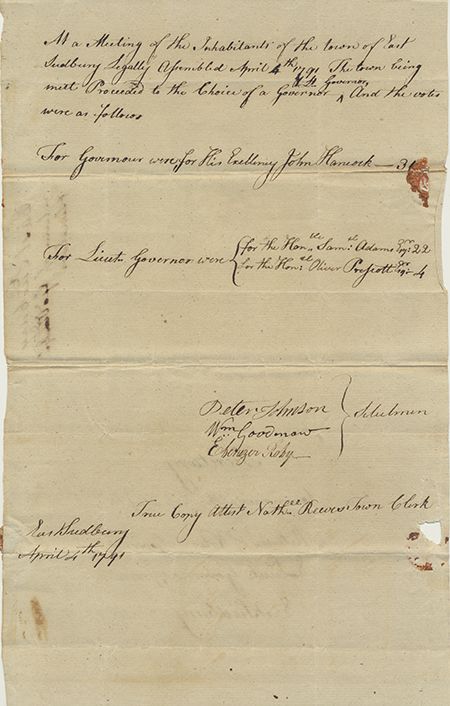 At a Meeting of the Inhabitants of the town of East
Sudbury Legally Assembled April 4th 1791 The town being
& Lt Governor
mett Proceeded to the Choice of a Governor ^ And the votes
were as follows
For Governour were for His Exellency John Hancock — 3
For Lieut. Governor were { for the Honble Saml Adams Esqr 22
for the Honble Oliver Prescott Esqr 4
Peter Johnson
Wm Goodnow } Selectmen
Ebenezer Roby
True Copy Attest Nathll Reeves Town Clerk
East Sudbury
April 4th 1791